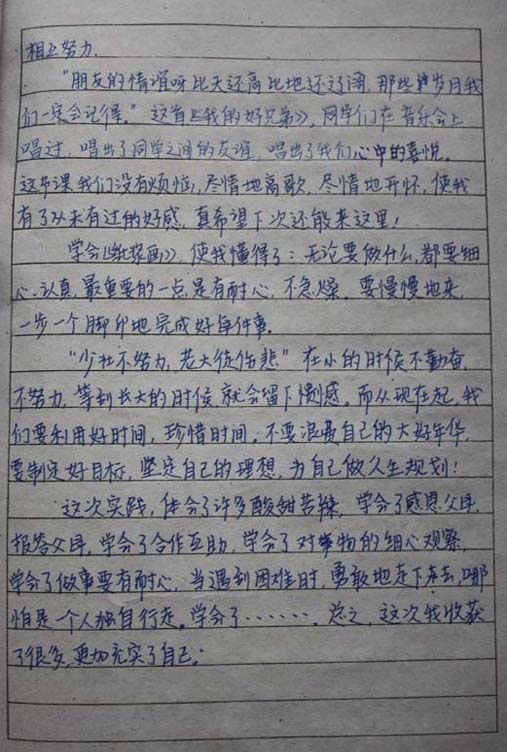 相互努力.
"朋友的情谊呀比天还高比地还辽阔,那些岁月我
们一定会记得。"这首《我的好兄弟》,同学们在音乐会上
唱过,唱出了同学之间的友谊,唱出了我们心中的喜悦。
这节课我们没有烦恼,尽情地高歌,尽情地开怀,使我
有了从未有过的好感,真希望下次还能来这里!
学会《纸浆画》,使我懂得了:无论要做什么,都要细
心、认真,最重要的一点是有耐心,不急燥,要慢慢地来,
一步一个脚印地完成好每件事.
"少壮不努力,老大徒伤悲"在小的时候不勤奋,
不努力,等到长大的时候就会留下感。而从现在起,我
们要利用好时间,珍惜时间,不要浪费自己的大好年华,
要制定好目标,坚定自己的理想,为自己做人生规划!
这次实践,体会了许多酸甜苦辣,学会了感恩父母,
报答父母,学会了合作互助,学会了对事物的细心观察,
学会了做事要有耐心,当遇到困难时,勇敢地走下去,哪
怕是一个人独自行走。学会了……,总之,这次我收获
了很多,更加充实了自己.